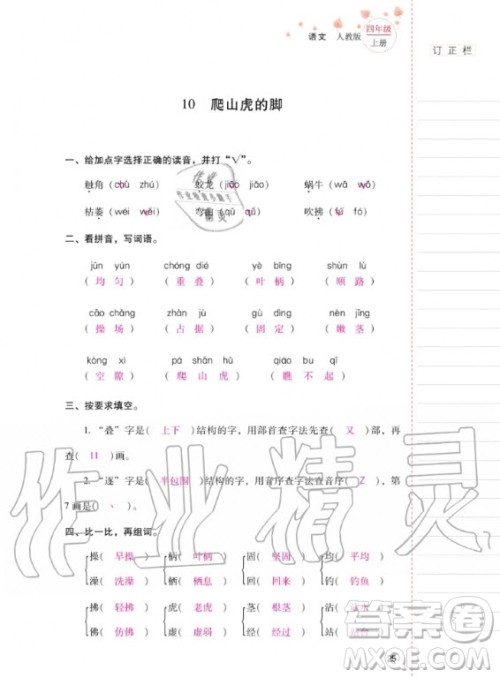 语文 人教版 四年级上册
订正栏
10 爬山虎的脚
一、给加点字选择正确的读音，并打“√”。
触角（chù zhú） 蛟龙（jiāo jiǎo） 蜗牛（wā wō）
枯萎（wéi wěi） 弯曲（qū qǔ） 吹拂（fú）
二、看拼音，写词语。
jūn yún chóng dié yè bǐng shùn lù
（均匀）（重叠）（叶柄）（顺路）
cāo chǎng zhàn jù gù dìng nèn jīng
（操场）（占据）（固定）（嫩茎）
kòng xì pá shān hǔ qiáo bu qǐ
（空隙）（爬山虎）（瞧不起）
三、按要求填空。
1. “叠”字是（上下）结构的字，用部首查字法先查（又）部，再
查（11）画。
2. “逐”字是（半包围）结构的字，用音序查字法查音序（Z），第
7画是（丶）。
四、比一比，再组词。
操（早操） 柄（叶柄） 固（坚固） 均（平均）
澡（洗澡） 栖（栖息） 回（回来） 钓（钓鱼）
拂（轻拂） 虎（老虎） 茎（根茎） 占
佛（仿佛） 虚（虚弱） 经（经过） 站
作业精灵
答案圈
MXQE.COM